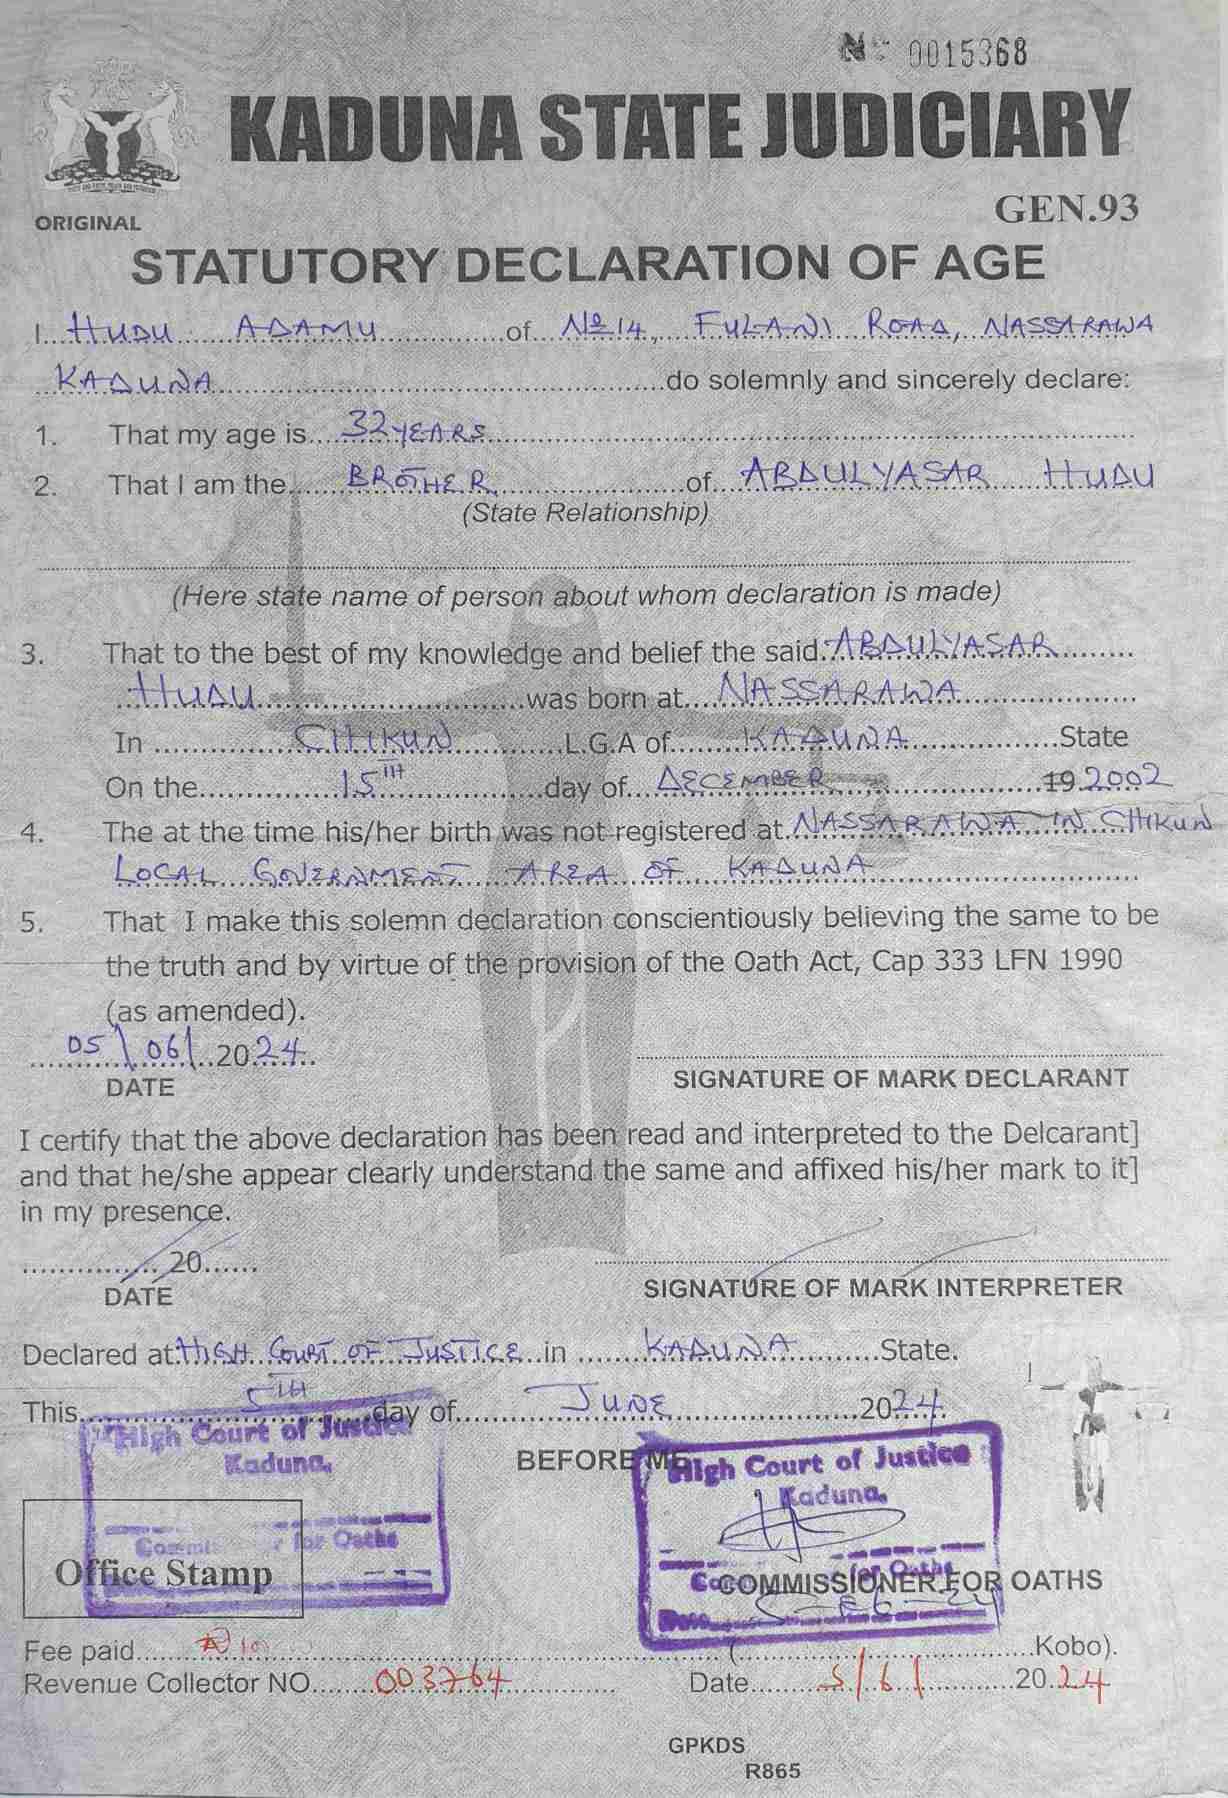 No 0015368
KADUNA STATE JUDICIARY
ORIGINAL
GEN.93
STATUTORY DECLARATION OF AGE
I...HUDU ADAMU...of...No 14, FULANI ROAD, NASSARAWA
KADUNA...do solemnly and sincerely declare:
1. That my age is...32 YEARS
2. That I am the...BROTHER...of...ABDULYASAR HUDU
(State Relationship)
(Here state name of person about whom declaration is made)
3. That to the best of my knowledge and belief the said ABDULYASAR
HUDU...was born at...NASSARAWA
In...CHIKUN...L.G.A of...KADUNA...State
On the...15TH...day of...DECEMBER...19 2002
4. The at the time his/her birth was not registered at NASSARAWA IN CHIKUN
LOCAL GOVERNMENT AREA OF KADUNA
5. That I make this solemn declaration conscientiously believing the same to be
the truth and by virtue of the provision of the Oath Act, Cap 333 LFN 1990
(as amended).
05/06/2024
DATE
SIGNATURE OF MARK DECLARANT
I certify that the above declaration has been read and interpreted to the Delcarant]
and that he/she appear clearly understand the same and affixed his/her mark to it]
in my presence.
20......
DATE
SIGNATURE OF MARK INTERPRETER
Declared at HIGH COURT OF JUSTICE in KADUNA State.
This 5TH day of JUNE 2024
High Court of Justice
Kaduna.
Commissioner for Oaths
Office Stamp
BEFORE ME
High Court of Justice
Kaduna.
for Oaths
COMMISSIONER FOR OATHS
Date 5-6-24
Fee paid...₦10...(...Kobo).
Revenue Collector NO...003764 Date...5/6/2024
GPKDS
R865